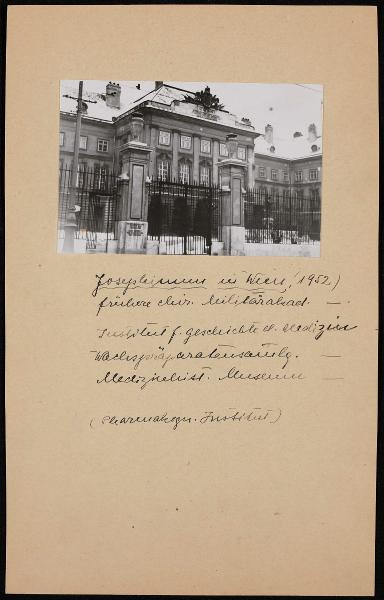 Josephinum in Wien, (1952)
frühere chir. Militärakad. —.
Institut f. geschichte d. Medizin
Wachspräparatensamlg. —
Medizinhist. Museum —
(Pharmakogn. Institut)